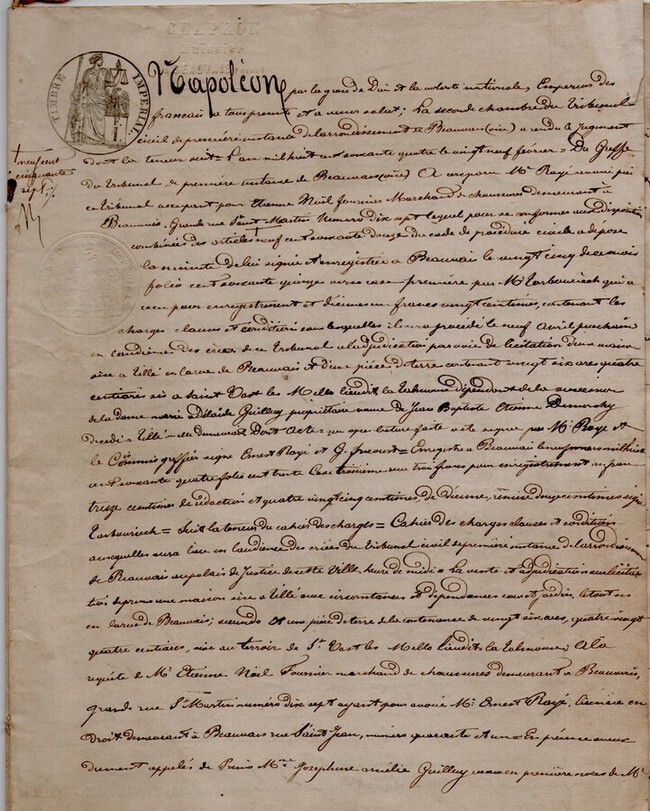 TIMBRE IMPERIAL
Napoléon par la grace de Dieu et la volonté nationale, Empereur des
français a tous présents et a venir salut; La seconde chambre du Tribunal
civil de première instance de l'arrondissement de Beauvais (oise) a rendu le jugement
dont la teneur suit = L'an mil huit cent soixante quatre le vingt neuf février = Au Greffe
du Tribunal de première instance de Beauvais (oise) A comparu Me Rayé avoué près
ce tribunal occupant pour Etienne Noël Fournier Marchand de chaussures demeurant a
Beauvais, Grande rue Saint Martin Numéro dix sept lequel pour se conformer aux dispositions
combinées des articles neuf cent soixante douze du code de procédure civile a déposé
la minute de lui signée et enregistrée a Beauvais le vingt cinq
folio cent soixante quinze verso case première par Mr Tarbouriech qui a
reçu pour enregistrement et décimes un francs vingt centimes, contenant les
charges clauses et conditions sous lesquelles il sera procédé le neuf Avril prochain
en l'audience des criées de ce Tribunal a l'adjudication par voie de licitation d'une maison
sise a Tillé en la rue de Beauvais et d'une pièce de terre contenant vingt six ares quatre
centiares sis a Saint Vast les Mello lieudit la dépendant de la succession
de la dame marie adélaïde Guilluy propriétaire veuve de Jean Baptiste Etienne
décédée a Tillé ou elle demeurait Dont Acte = que après lecture faite a été signé par Me Rayé et
le Commis greffier signé Ernest Rayé et G. = Enregistré a Beauvais le mars mil huit
cent soixante quatre folio cent trente Case troisième reçu trois francs pour enregistrement un franc
treize centimes de rédaction et quatre vingt cinq centimes de décime, remise douze centimes signé
Tarbouriech = Suit la teneur du cahier des charges = Cahier des charges clauses et conditions
auxquelles aura lieu en l'audience des criées du Tribunal civil de première instance de l'arrondissement
de Beauvais au palais de Justice de cette Ville, heure de midi = La vente et adjudication sur licitation
de primo une maison sise a Tillé avec circonstances et dépendances cour et jardin, le tout sis
en la rue de Beauvais; secundo et une pièce de terre de la contenance de vingt six ares, quatre vingt
quatre centiares, sise au terroir de St Vast les Mello lieudit la; A la
requête de Mr Etienne Noël Fournier marchand de chaussures demeurant a Beauvais,
grande rue St Martin numéro dix sept ayant pour avoué Me Ernest Rayé, licencié en
Droit demeurant a Beauvais rue Saint Jean, numéro quarante et un = En présence ou eux
dument appelés de Primo Mme Joséphine amélie Guilluy veuve en première noces de Mr
neuf cent
cinquante
sept